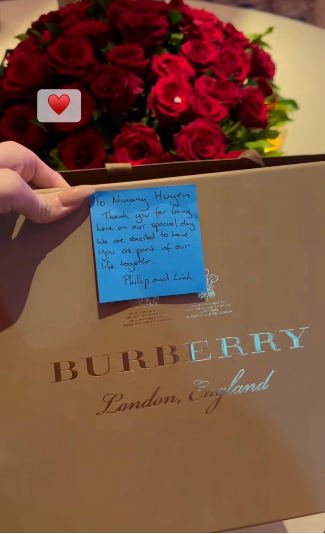 To Ninang Huyen
Thank you for being
here on our special day
We are excited to have
you as part of our
life together.
Phillip and Linh
BURBERRY
London, England